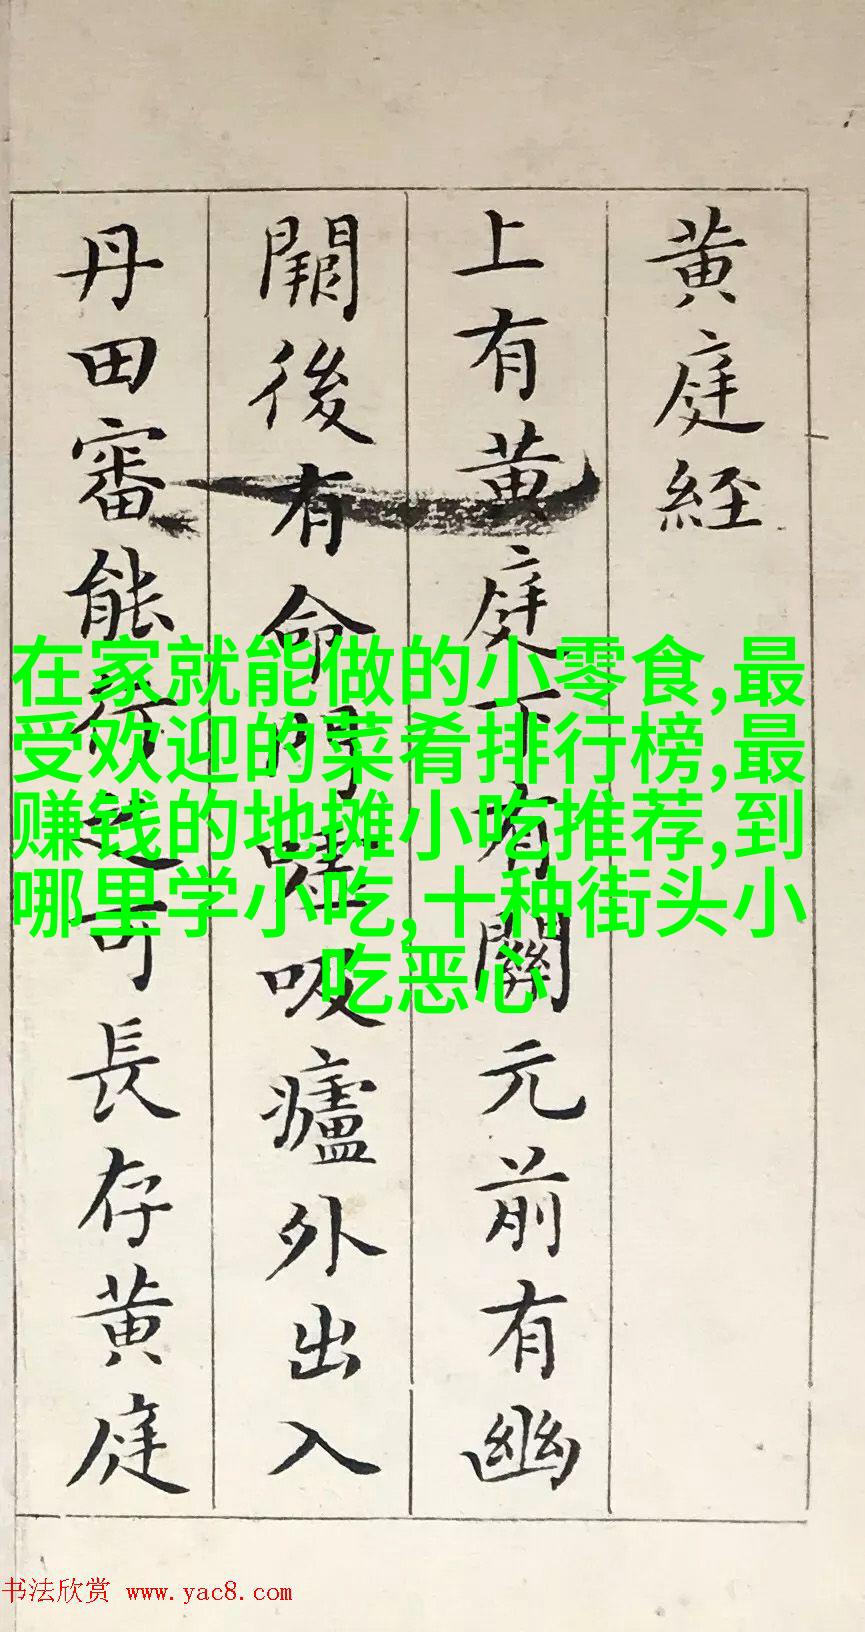 黄庭經
上有黄庭下有關元前有幽
闕後有命門嘘吸廬外出入
丹田審能行之可長存黄庭
在家就能做的小零食,最
受欢迎的菜肴排行榜,最
赚钱的地摊小吃推荐,到
哪里学小吃,十种街头小
吃恶心
书法欣赏 www.yac8.com